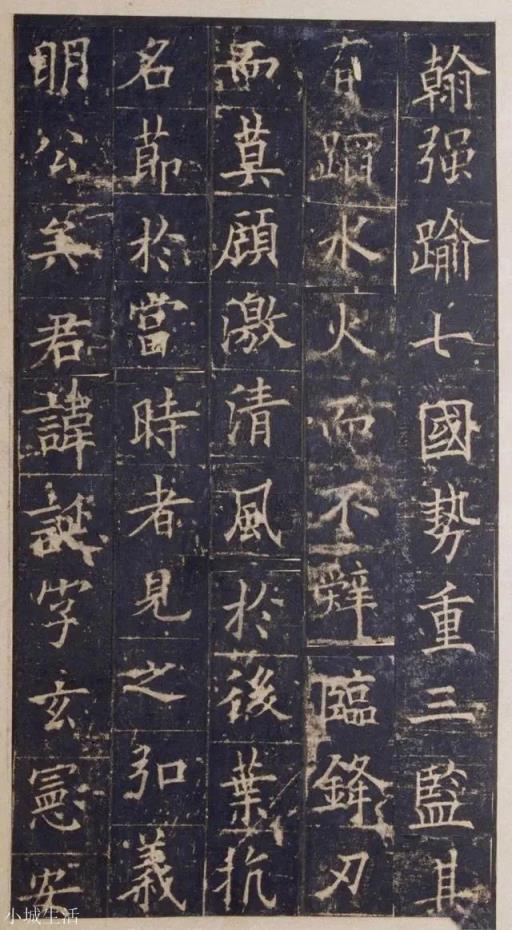 翰强踰七國勢重三監其
有蹈水火而不辤臨鋒刃
而莫顧激清風於後葉抗
名節於當時者見之弘義
明公矣君諱誕字玄憲安
小城生活